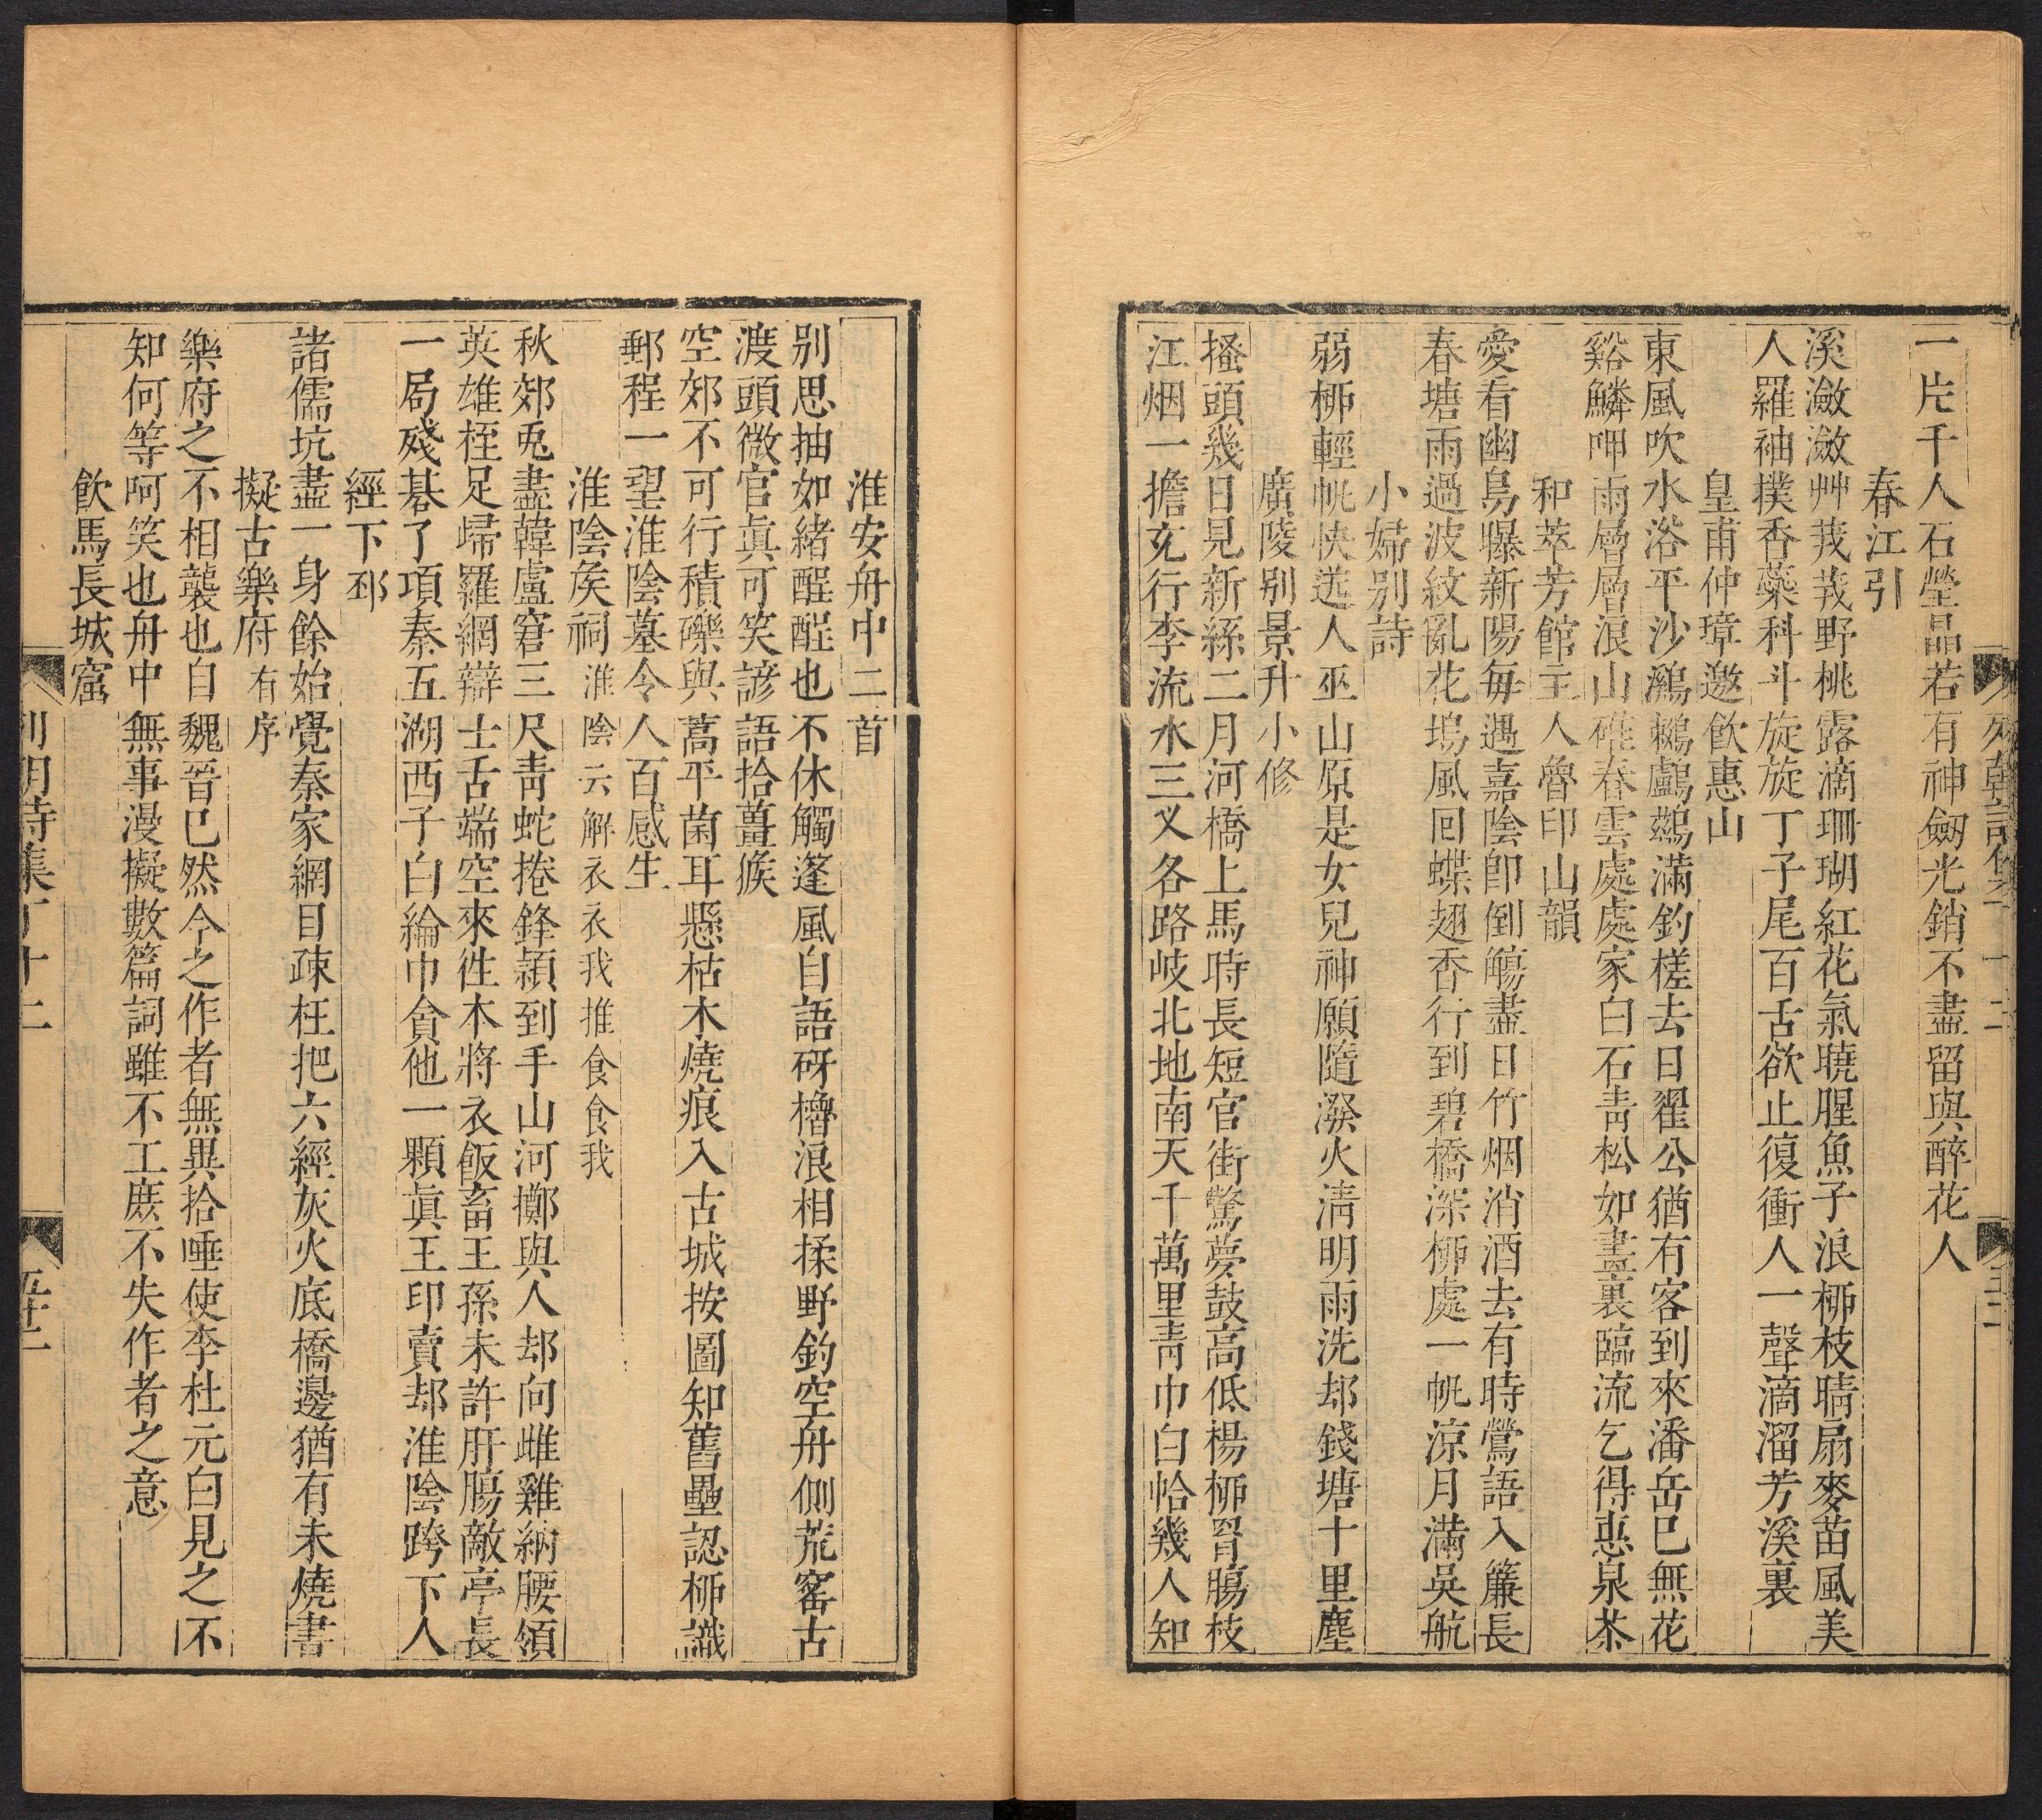 一片千人石瑩晶若有神劒光銷不盡留與醉花人
春江引
溪瀲瀲艸茙茙野桃露滴珊瑚紅花氣曉腥魚子浪桺枝晴扇麥苗風美
人羅袖撲香蘂科斗旋旋丁子尾百舌欲止復衝人一聲滴溜芳溪裏
皇甫仲璋邀飲惠山
東風吹水浴平沙鸂鶒鸕鷀滿釣槎去日翟公猶有客到來潘岳巳無花
谿鱗呷雨層層浪山碓春雲處處家白石靑松如畫裏臨流乞得惠泉茶
和萃芳館主人魯印山韻
愛看幽鳥曝新陽每遇嘉陰卽倒觴盡日竹烟消酒去有時鶯語入簾長
春塘雨過波紋亂花塢風回蝶翅香行到碧橋深桺處一帆涼月滿吳航
小婦别詩
弱桺輕帆快送人巫山原是女兒神願隨潑火淸明雨洗却錢塘十里塵
廣陵别景升小修
搔頭幾日見新絲二月河橋上馬時長短官街驚夢鼓高低楊桺罥腸枝
江烟一擔充行李流水三叉各路岐北地南天千萬里靑巾白帢幾人知
淮安舟中二首
别思抽如緒醒醒也不休觸篷風自語砑櫓浪相揉野釣空舟側荒窰古
渡頭微官眞可笑諺語拾薑候
空郊不可行積礫與蒿平菌耳懸枯木燒痕入古城按圖知舊壘認桺識
郵程一望淮陰墓令人百感生
淮陰矦祠淮陰云解衣衣我推食食我
秋郊兎盡韓盧窘三尺靑蛇捲鋒穎到手山河擲與人却向雌雞納腰領
英雄桎足歸羅網辯士舌端空來徃木將衣飯畜王孫未許肝腸敵亭長
一局殘碁了項秦五湖西子白綸巾貪他一顆眞王印賣却淮陰跨下人
經下邳
諸儒坑盡一身餘始覺秦家網目疎枉把六經灰火底橋邊猶有未燒書
擬古樂府有序
樂府之不相襲也自魏晉已然今之作者無異拾唾使李杜元白見之不
知何等呵笑也舟中無事漫擬數篇詞雖不工庶不失作者之意
飮馬長城窟